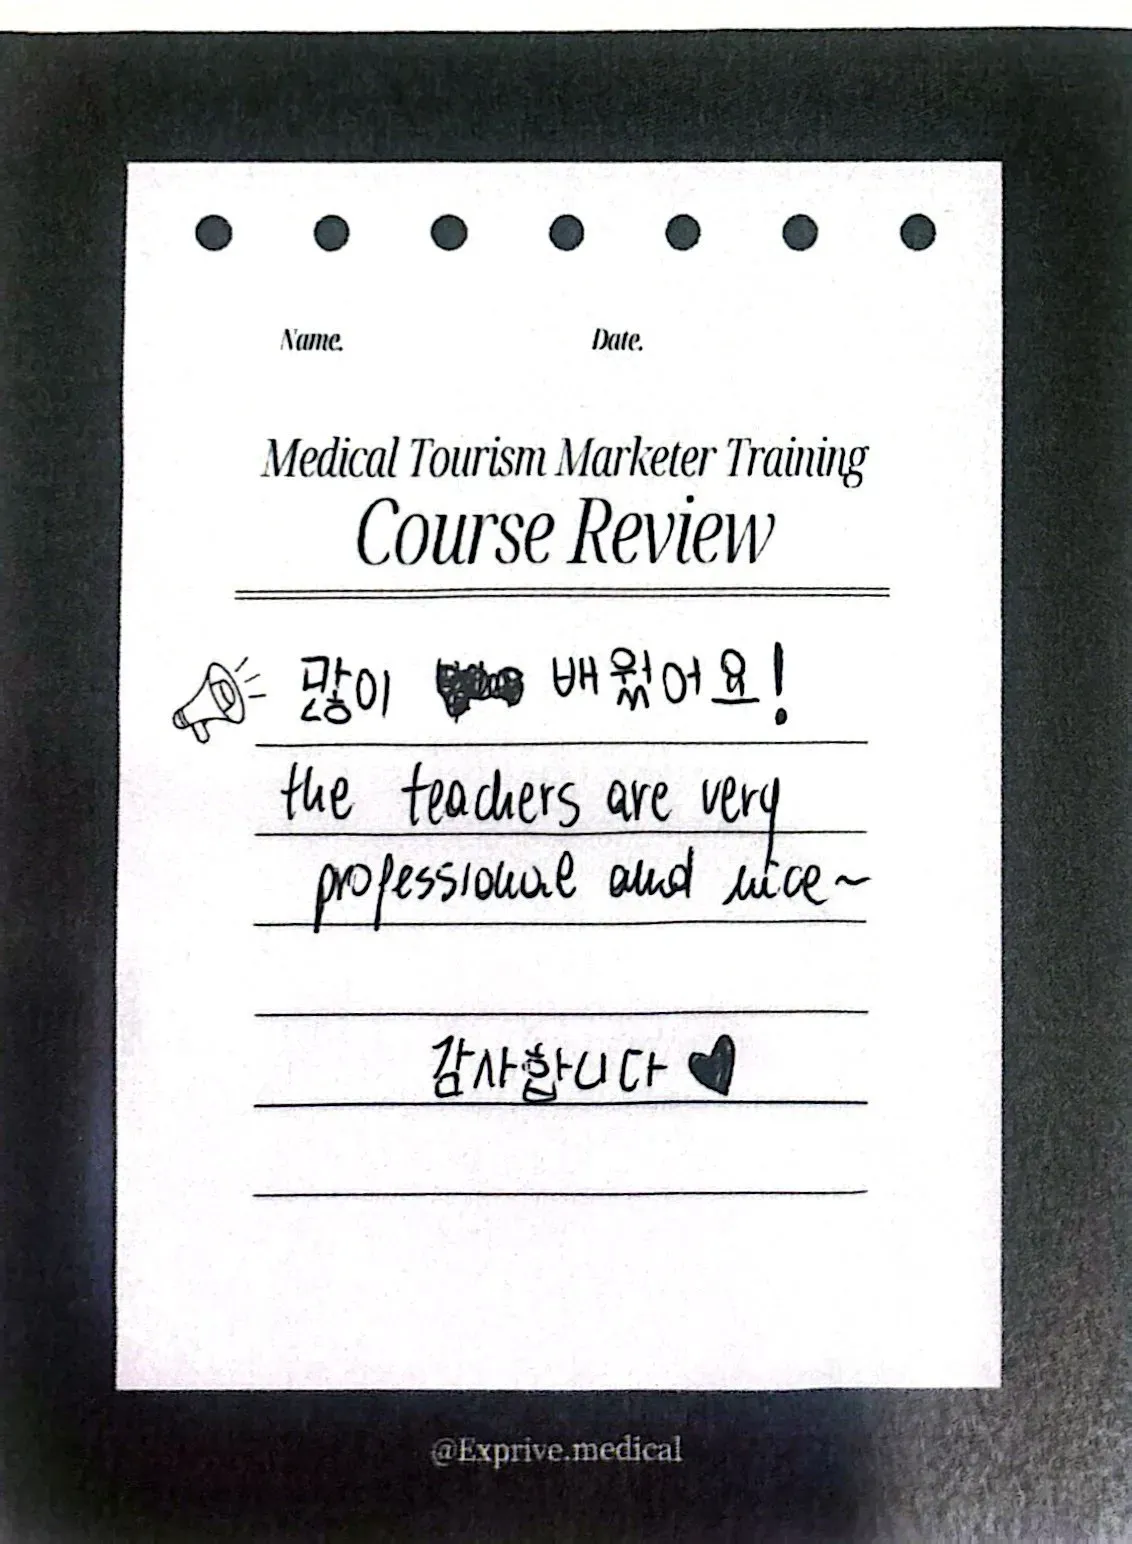 Name. Date.
Medical Tourism Marketer Training
Course Review
많이 배웠어요!
the teachers are very
professional and nice~
감사합니다
@Exprive.medical